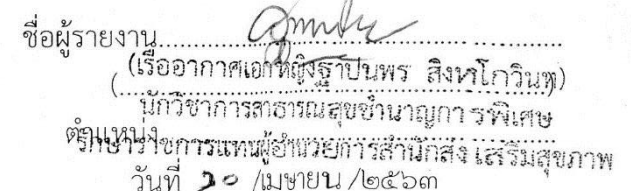 ชื่อผู้รายงาน
(เรืออากาศเอกหญิงฐาปนพร สิงหโกวินท)
นักวิชาการสาธารณสุขชำนาญการพิเศษ
ตำแหน่ง
รักษาราชการแทนผู้อำนวยการสำนักส่งเสริมสุขภาพ
วันที่ ๒๐ /เมษายน /๒๕๖๓